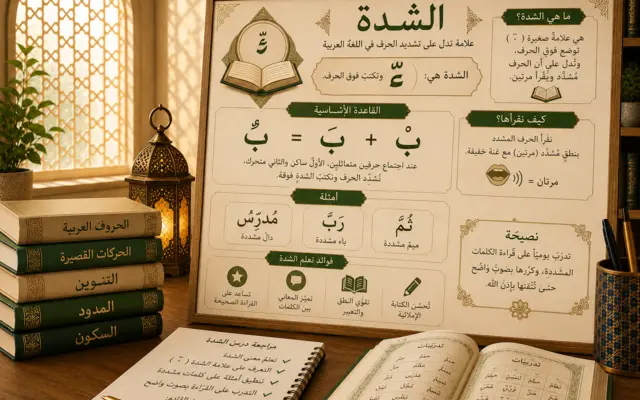 الشدة
علامة تدل على تشديد الحرف في اللغة العربية
الشدة هي:
وتكتب فوق الحرف.
ما هي الشدة؟
هي علامة صغيرة ( ّ )
توضع فوق الحرف،
وتُدل علي أن الحرف
مُشدَّد ويُقرأ مرتين.
القاعدة الأساسية
بْ + بَ = بَّ
عند اجتماع حرفين متماثلين، الأول ساكن والثاني متحرك،
نُشدِّد الحرف ونكتب الشدة فوقه.
كيف نقرأها؟
نقرأ الحرف المشدد
بنطقٍ مُشدَّد (مرتين) مع غنة خفيفة.
مرتان =
أمثلة
ثُمَّ
ميم مشددة
رَبَّ
باء مشددة
مُدرِّسُ
دال مشددة
نصيحة
تدرَب يومياً على قراءة الكلمات
المشددة، وكررها بصوتٍ واضح
حتى تُتقنها بإذن الله.
فوائد تعلم الشدة
تُحسّن الكتابة
الإملائية
تقوّي النطق
والتعبير
تميّز المعاني
بين الكلمات
تساعد على
القراءة الصحيحة
الحروف العربية
الحركات القصيرة
التنوين
المدود
السكون
مراجعة درس الشدة
تعلم معنى الشدة
التعرف على علامة الشدة ( ّ )
تطبيق أمثلة على كلمات مشددة
التدرب على القراءة بصوت واضح
تدريبات
تدريبات